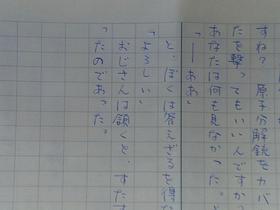 すね? 原子分解銃をカバ
たを撃ってもいいんですか?
あなたは何も見なかった。と
「――ああ」
と、ぼくは答えざるを得な
「よろしい」
おじさんは頷くと、すた
ったのであった。